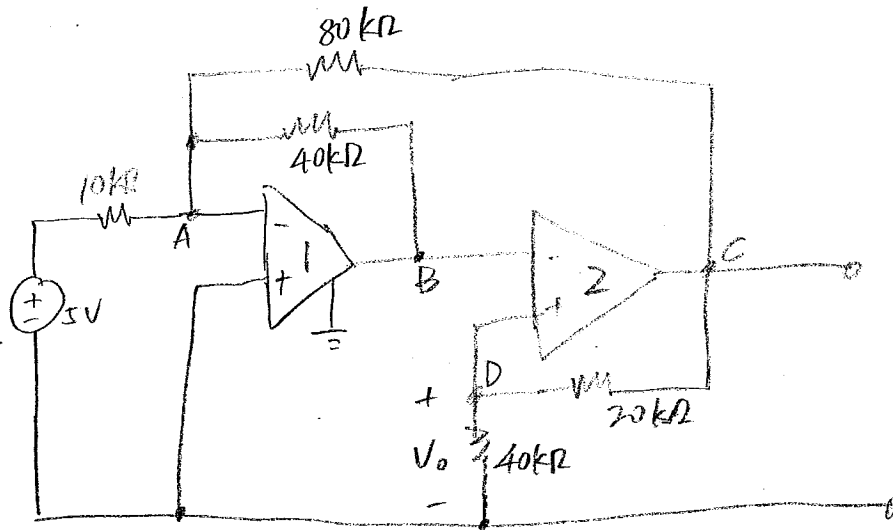 80kΩ
40kΩ
10kΩ
A
-
1
+
B
-
2
+
C
+
-
5V
D
20kΩ
+
Vo
40kΩ
-